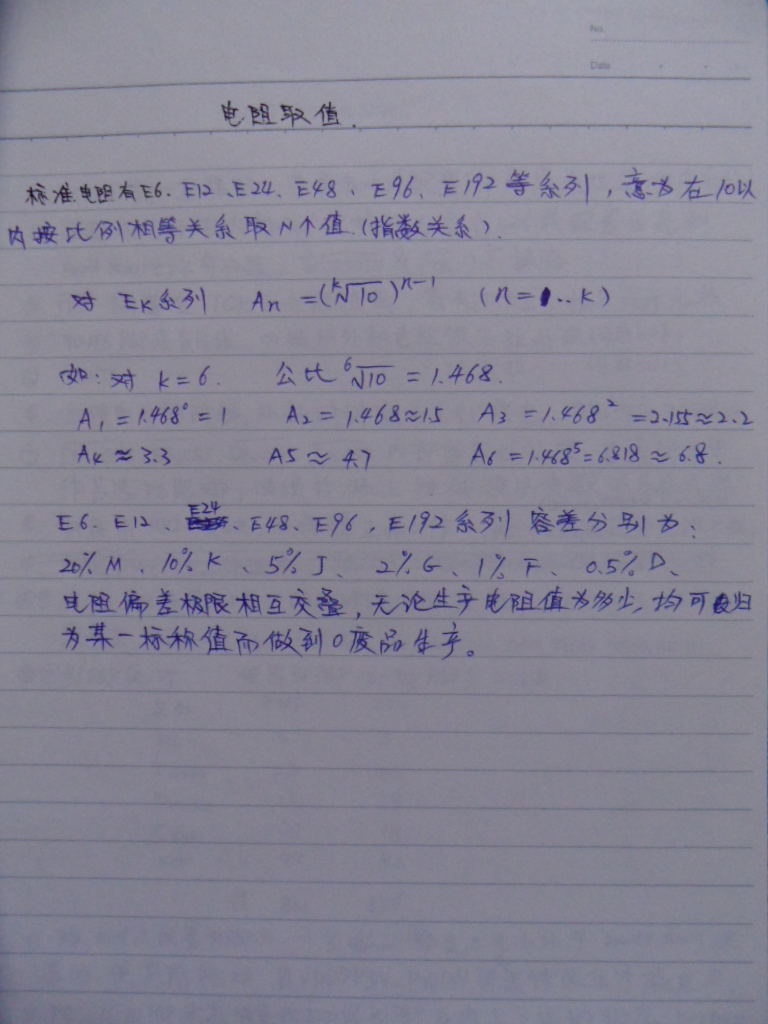 No
Date
电阻取值.
标准电阻有E6、E12、E24、E48、E96、E192等系列，意为在10以
内按比例相等关系取N个值.(指数关系).
对 EK系列 An =(ᵏ√10)ⁿ⁻¹ (n=1..k)
如：对 k=6. 公比 ⁶√10 = 1.468.
A₁ = 1.468⁰ = 1 A₂ = 1.468≈1.5 A₃ = 1.468² =2.155≈2.2
A₄ ≈ 3.3 A5 ≈ 4.7 A₆ =1.468⁵=6.818 ≈ 6.8.
E6、E12、E24、E48、E96、E192系列 容差分别为：
20% M、10% K、5% J、2% G、1% F、0.5% D、
电阻偏差极限相互交叠，无论生产电阻值为多少，均可归
为某一标称值而做到0废品生产。